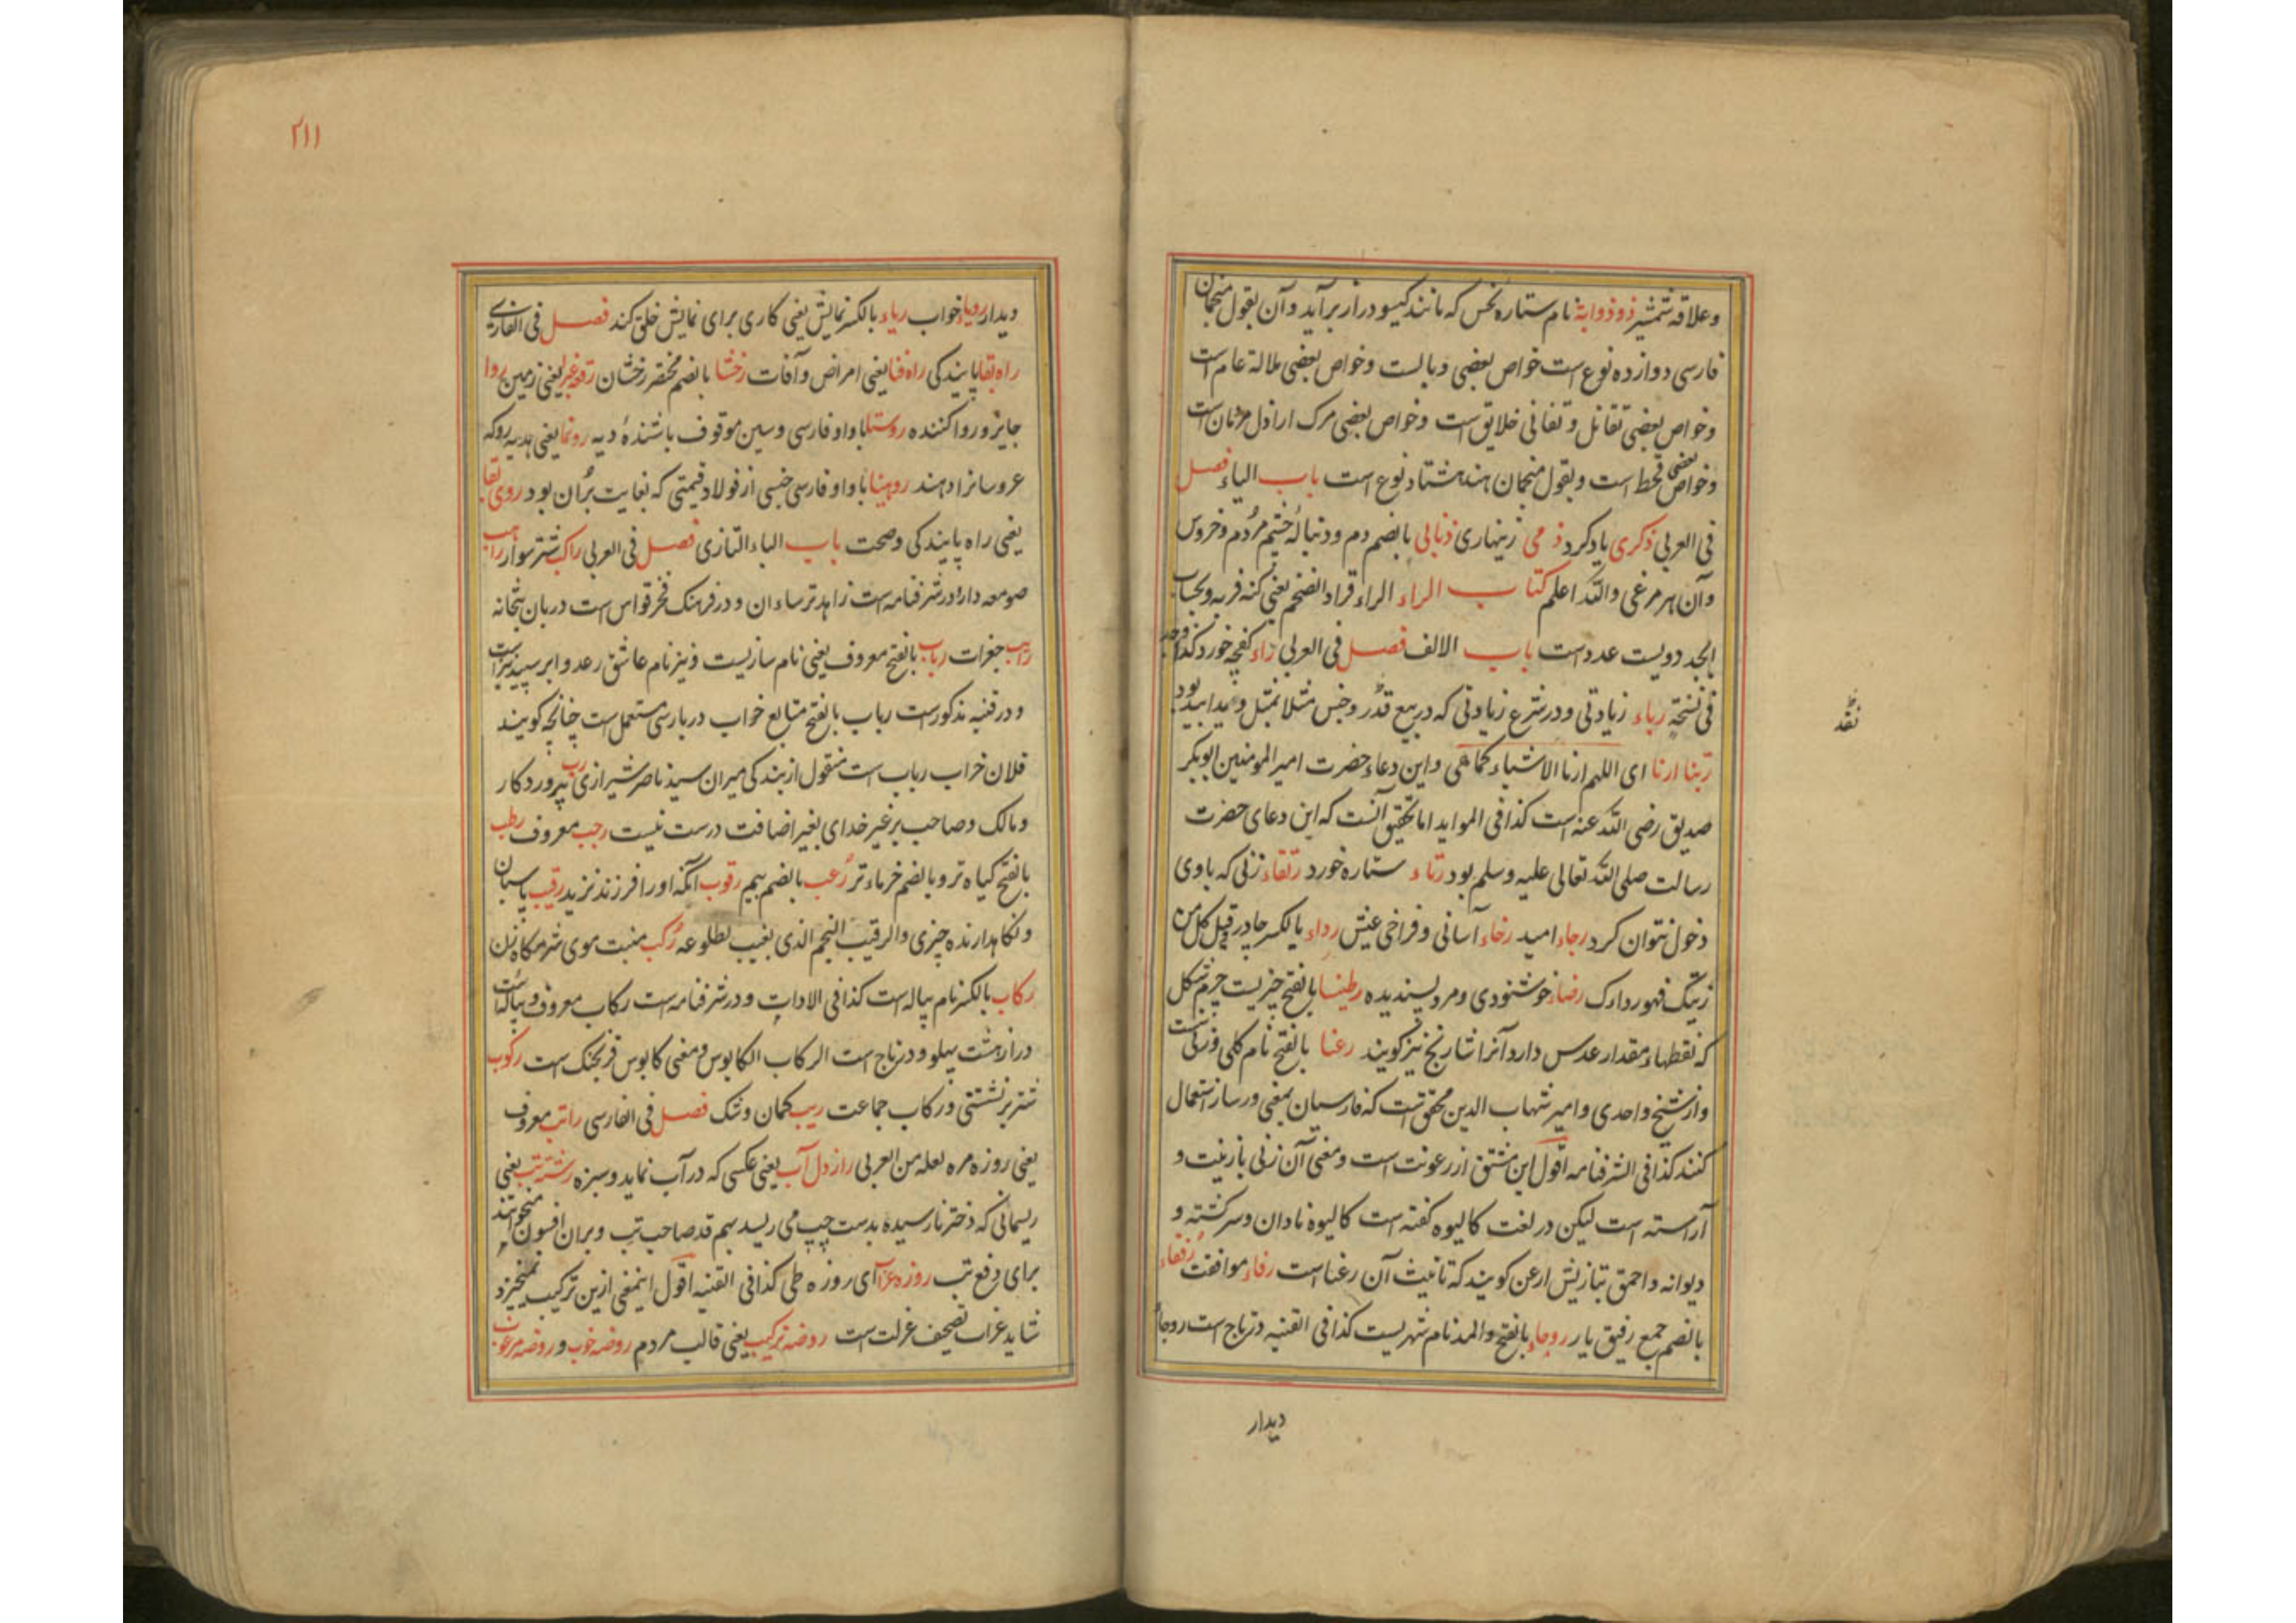 وعلاقه شمشیر ذو ذوابة نام ستاره نحس که مانند کیسو دراز برآید وآن بقول منجمان
فارسی دوازده نوع است خواص بعضی وبالست وخواص بعضی ملالة عام است
وخواص بعضی تقاتل وتفانی خلایق است وخواص بعضی مرک اراذل مردمان است
وخواص بعضی قحط است وبقول منجمان هند هشتاد نوع است باب الیاء فصل
فی العربی ذکری یاد کرد ذمی زینهاری ذنابی بالضم دم ودنباله چشم مردم وخروس
وآن هر مرغی والله اعلم کتاب الراء الراء قراد الضخم یعنی کنه فربه وبحساب
ابجد دویست عدد است باب الالف فصل فی العربی راء کفچه خورد کذا
فی نسخة رباء زیادتی ودر شرع زیادتی که در بیع قدر وجنس مثلا بمثل
ربنا ارنا ای اللهم ارنا الاشیاء کماهی واین دعاء حضرت امیر المومنین ابوبکر
صدیق رضی الله عنه است کذا فی المواید اما تحقیق آنست که این دعای حضرت
رسالت صلی الله تعالی علیه وسلم بود رتاء ستاره خورد رتقاء زنی که باوی
دخول نتوان کرد رجاء امید رخاء آسانی وفراخی عیش رداء بالکسر چادر قیل کل من
زینک فهو رداءک رضاء خوشنودی ومرد پسندیده رطینا بالفتح چیزیست چرم شکل
که نقطهاء مقدار عدس دارد آنرا شارنج نیز کویند رعنا بالفتح نام کلی وزنی است
واز شیخ واحدی وامیر شهاب الدین محقق است که فارسیان بمعنی ورساز استعمال
کنند کذا فی الشرفنامه اقول این مشتق از رعونت است ومعنی آن زنی بازینت و
آراسته است لیکن در لغت کالیوه کفته است کالیوه نادان وسرکشته و
دیوانه واحمق بتازیش ارعن کویند که تانیث آن رعنا است رفاء موافقت رفقاء
بالضم جمع رفیق یار روحاء بالفتح والمد نام شهریست کذا فی القنیه در تاج است روحاء
دیدار
نقد
۲۱۱
دیدار رویاء خواب ریاء بالکسر نمایش یعنی کاری برای نمایش خلق کند فصل فی الفارسی
راه بقا پایندکی راه فنا یعنی امراض وآفات رخشا بالضم مختصر رخشان رقعه غبرا یعنی زمین روا
جایز وروا کننده روستا باواو فارسی وسین موقوف باشندهٔ دیه رونما یعنی هدیه روکه
عروسانرا دهند روهینا باواو فارسی جنسی از فولاد قیمتی که بغایت بران بود روی بقا
یعنی راه پایندکی وصحت باب الباء التازی فصل فی العربی راکب شتر سوار راهب
صومعه دار ودر شرفنامه است زاهد ترسایان ودر فرهنک فخر قواس است دربان بتخانه
رایب جغرات رباب بالفتح معروف یعنی نام سازیست ونیز نام عاشق رعد وابر سپید نیز است
ودر قنیه مذکور است رباب بالفتح متابع خواب در پارسی مستعمل است چنانچه کویند
فلان خراب رباب است منقول از بندکی میران سید ناصر شیرازی رب پروردکار
ومالک وصاحب بر غیر خدای بغیر اضافت درست نیست رجب معروف رطب
بالفتح کیاه تر وبالضم خرماء تر رعب بالضم بیم رقوب آنکه اورا فرزند نزید رقیب پاسبان
ونکاهدارنده چیزی والرقیب النجم الذی یغیب بطلوعه رکب منبت موی شرمکاه زن
رکاب بالکسر نام پیاله است کذا فی الادات ودر شرفنامه است رکاب معروف وپیاله است
دراز هشت پهلو ودر تاج است الرکاب الکابوس ومعنی کابوس فرنجک است رکوب
شتر برنشستنی ورکاب جماعت ریب کمان وشک فصل فی الفارسی راتب معروف
یعنی روزه مره لعله من العربی راز دل آب یعنی عکسی که در آب نماید وسبزه رشته تب یعنی
ریسمانی که دختر نارسیده بدست چپ می ریسد بهم قد صاحب تب وبران افسون میخوانند
برای دفع تب روزه عزا آی روزه طی کذا فی القنیه اقول اینمعنی ازین ترکیب نمیخیزد
شاید غراب تصحیف عزلت است روضه ترکیب یعنی قالب مردم روضه خوب وروضه مرغوب